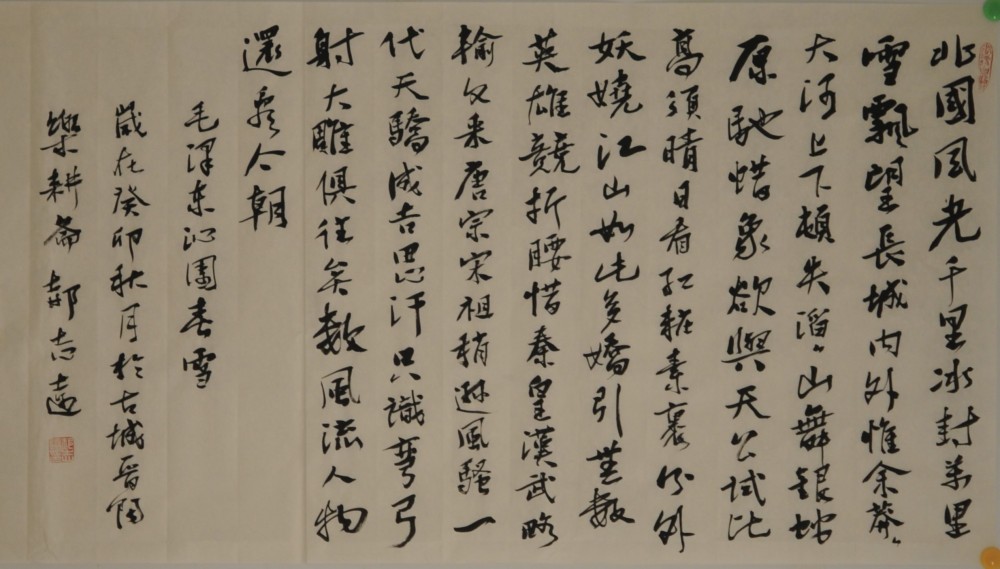 北國風光千里冰封萬里
雪飄望長城内外惟余莽〻
大河上下頓失滔〻山舞銀蛇
原馳蜡象欲與天公試比
高須晴日看紅粧素裹分外
妖嬈江山如此多嬌引無數
英雄競折腰惜秦皇漢武略
輸文采唐宗宋祖稍遜風騷一
代天驕成吉思汗只識彎弓
射大雕俱往矣數風流人物
還看今朝
毛澤東沁園春雪
歲在癸卯秋月於古城晉陽
樂耕齋 郝志遠